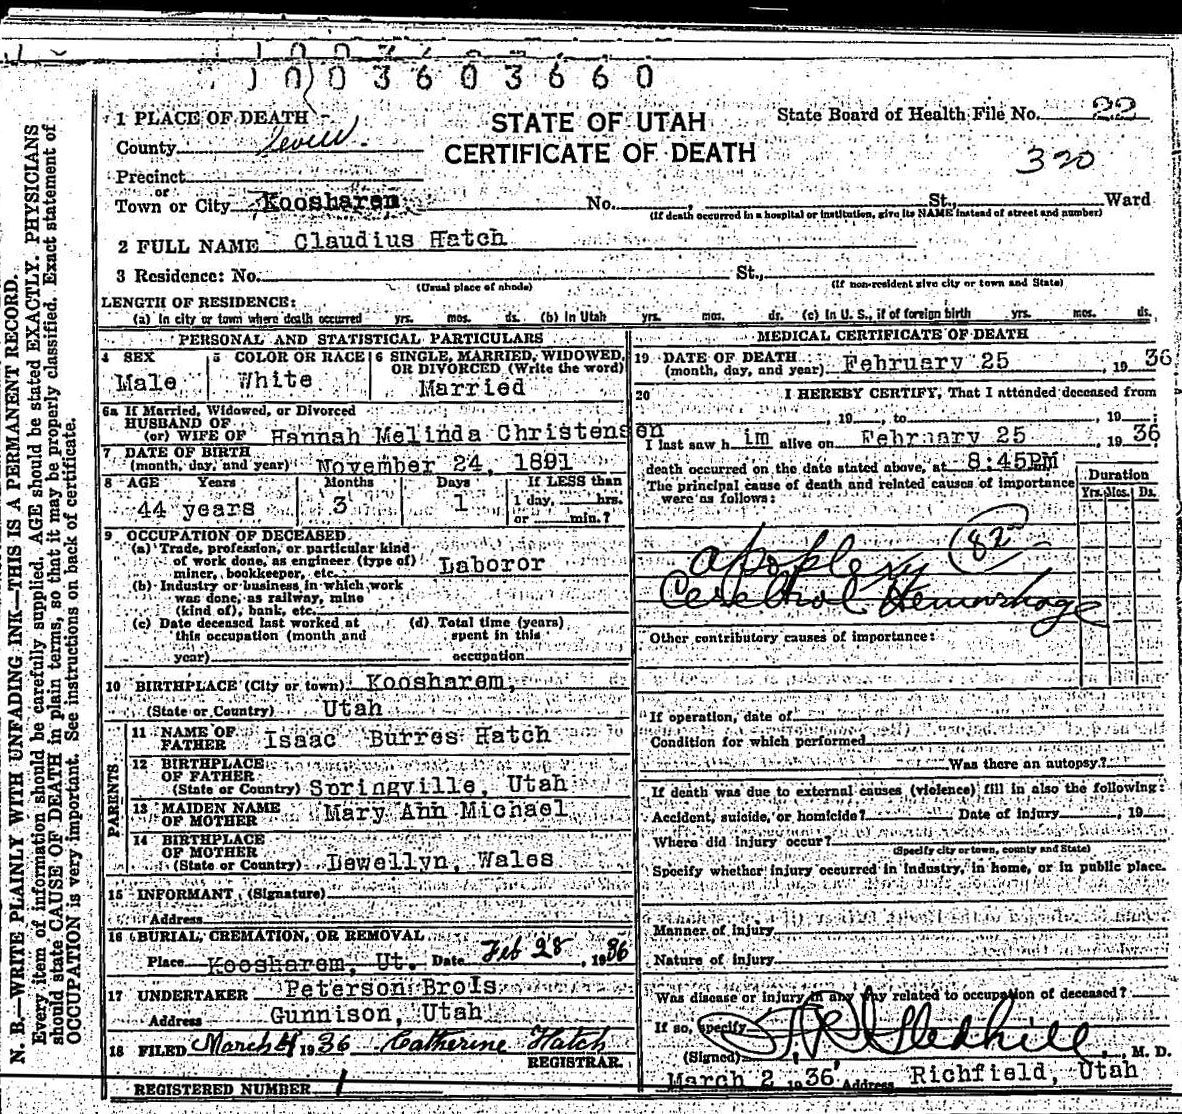 1003603660
1 PLACE OF DEATH
STATE OF UTAH
CERTIFICATE OF DEATH
State Board of Health File No. 22
320
County Sevier
Precinct
or
Town or City Koosharem No. , St., Ward
(If death occurred in a hospital or institution, give its NAME instead of street and number)
2 FULL NAME Claudius Hatch
3 Residence: No. St.,
(Usual place of abode) (If non-resident give city or town and State)
LENGTH OF RESIDENCE:
(a) In city or town where death occurred yrs. mos. ds. (b) In Utah yrs. mos. ds. (c) In U. S., if of foreign birth yrs. mos. ds.
PERSONAL AND STATISTICAL PARTICULARS
4 SEX
Male
5 COLOR OR RACE
White
6 SINGLE, MARRIED, WIDOWED,
OR DIVORCED (Write the word)
Married
6a If Married, Widowed, or Divorced
HUSBAND OF
(or) WIFE OF Hannah Melinda Christensen
7 DATE OF BIRTH
(month, day, and year) November 24, 1891
8 AGE Years Months Days If LESS than
44 years 3 1 1 day, hrs.
or min.?
9 OCCUPATION OF DECEASED
(a) Trade, profession, or particular kind
of work done, as engineer (type of)
miner, bookkeeper, etc. Laboror
(b) Industry or business in which work
was done, as railway, mine
(kind of), bank, etc.
(c) Date deceased last worked at
this occupation (month and
year)
(d) Total time (years)
spent in this
occupation
10 BIRTHPLACE (City or town) Koosharem,
(State or Country) Utah
PARENTS
11 NAME OF
FATHER Isaac Burres Hatch
12 BIRTHPLACE
OF FATHER
(State or Country) Springville, Utah
13 MAIDEN NAME
OF MOTHER Mary Ann Michael
14 BIRTHPLACE
OF MOTHER
(State or Country) Lewellyn, Wales
15 INFORMANT (Signature)
Address
16 BURIAL, CREMATION, OR REMOVAL
Place Koosharem, Ut. Date Feb 28, 1936
17 UNDERTAKER Peterson Brols
Address Gunnison, Utah
18 FILED March 4 1936 Catherine Hatch
REGISTRAR.
REGISTERED NUMBER 1
MEDICAL CERTIFICATE OF DEATH
19 DATE OF DEATH
(month, day, and year) February 25, 1936
20 I HEREBY CERTIFY, That I attended deceased from
, 19 , to , 19 ;
I last saw h im alive on February 25, 1936
death occurred on the date stated above, at 8:45PM
The principal cause of death and related causes of importance
were as follows:
Duration
Yrs. Mos. Ds.
82
apoplexy
Cerebral Hemorrhage
Other contributory causes of importance:
If operation, date of
Condition for which performed
Was there an autopsy?
If death was due to external causes (violence) fill in also the following:
Accident, suicide, or homicide? Date of injury , 19
Where did injury occur?
(Specify city or town, county and State)
Specify whether injury occurred in industry, in home, or in public place.
Manner of injury
Nature of injury
Was disease or injury in any way related to occupation of deceased?
If so, specify
(Signed) Gledhill, M. D.
March 2, 1936 Address Richfield, Utah
N. B.—WRITE PLAINLY WITH UNFADING INK—THIS IS A PERMANENT RECORD.
Every item of information should be carefully supplied. AGE should be stated EXACTLY. PHYSICIANS
should state CAUSE OF DEATH in plain terms, so that it may be properly classified. Exact statement of
OCCUPATION is very important. See instructions on back of certificate.